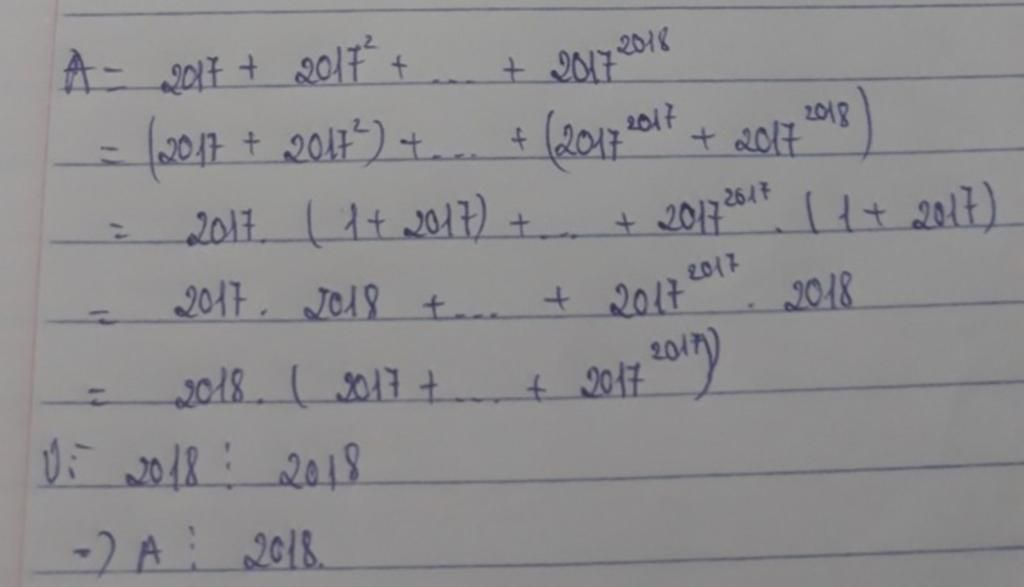 A = 2017 + 2017² + ... + 2017²⁰¹⁸
= (2017 + 2017²) + ... + (2017²⁰¹⁷ + 2017²⁰¹⁸)
= 2017. (1 + 2017) + ... + 2017²⁰¹⁷ . (1 + 2017)
= 2017. 2018 + ... + 2017²⁰¹⁷ . 2018
= 2018. (2017 + ... + 2017²⁰¹⁷)
Vì 2018 ⋮ 2018
=> A ⋮ 2018.